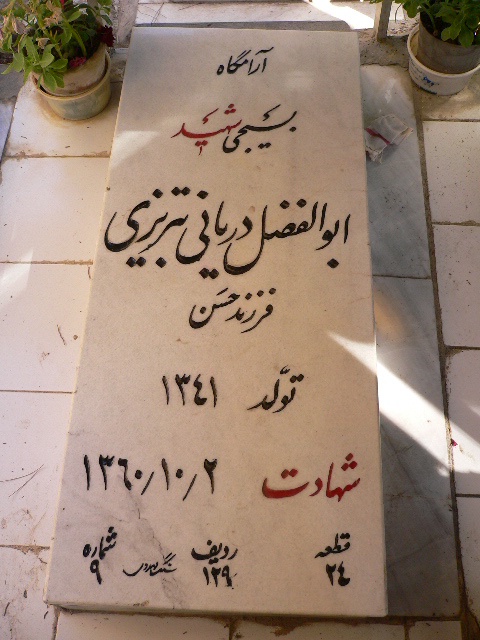 آرامگاه
بسیجی شهید
ابوالفضل دریانی تبریزی
فرزند حسن
تولّد ۱۳۴۱
شهادت ۱۳۶۰/۱۰/۲
قطعه ردیف شماره
۲۴ ۱۲۹ ۹